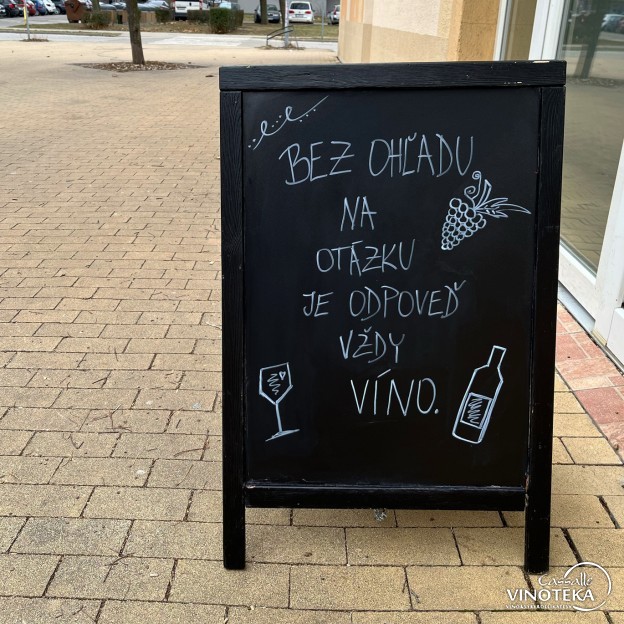 BEZ OHĽADU
NA
OTÁZKU
JE ODPOVEĎ
VŽDY
VÍNO.
Cassallé
VINOTEKA